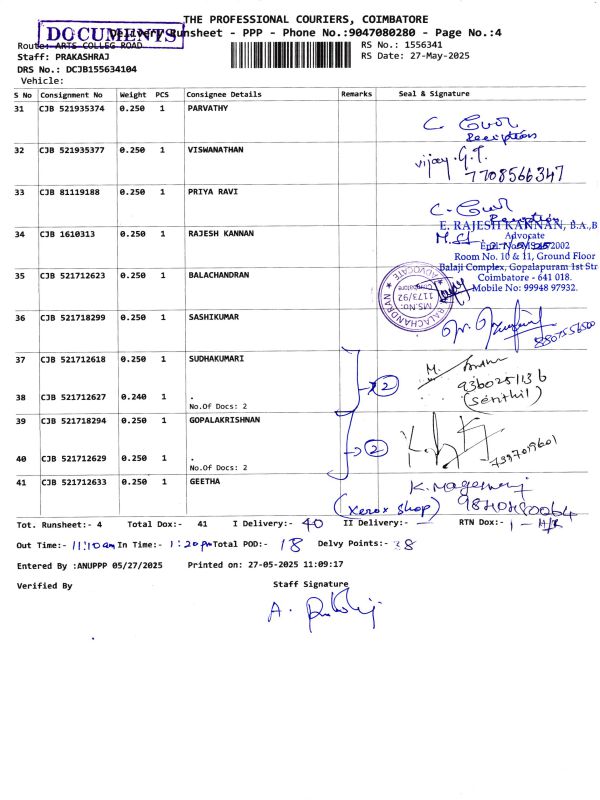 THE PROFESSIONAL COURIERS, COIMBATORE
DOCUMENTS
Delivery Runsheet - PPP - Phone No.:9047080280 - Page No.:4
Route: ARTS COLLEG ROAD
RS No.: 1556341
Staff: PRAKASHRAJ
RS Date: 27-May-2025
DRS No.: DCJB155634104
Vehicle:
S No Consignment No Weight PCS Consignee Details Remarks Seal & Signature
31 CJB 521935374 0.250 1 PARVATHY
Reception
32 CJB 521935377 0.250 1 VISWANATHAN
vijay.G.T.
7708566347
33 CJB 81119188 0.250 1 PRIYA RAVI
Reception
34 CJB 1610313 0.250 1 RAJESH KANNAN
E. RAJESH KANNAN, B.A.,B
Advocate
2002
Room No. 10 & 11, Ground Floor
Balaji Complex, Gopalapuram 1st Str
Coimbatore - 641 018.
Mobile No: 99948 97932.
35 CJB 521712623 0.250 1 BALACHANDRAN
BALACHANDRAN ★ ADVOCATE ★
MS.NO:
1173/92
Coimbatore
36 CJB 521718299 0.250 1 SASHIKUMAR
8807556500
37 CJB 521712618 0.250 1 SUDHAKUMARI
M.
9360251136
(Senthil)
38 CJB 521712627 0.240 1 .
No.Of Docs: 2
2
39 CJB 521718294 0.250 1 GOPALAKRISHNAN
2
7397019601
40 CJB 521712629 0.250 1 .
No.Of Docs: 2
41 CJB 521712633 0.250 1 GEETHA
K. Mageswari
(Xerox shop)
Tot. Runsheet:- 4 Total Dox:- 41 I Delivery:- 40 II Delivery:- — RTN Dox:- 1 -
Out Time:- 11:10am In Time:- 1:20pm Total POD:- 18 Delvy Points:- 38
Entered By :ANUPPP 05/27/2025 Printed on: 27-05-2025 11:09:17
Verified By Staff Signature